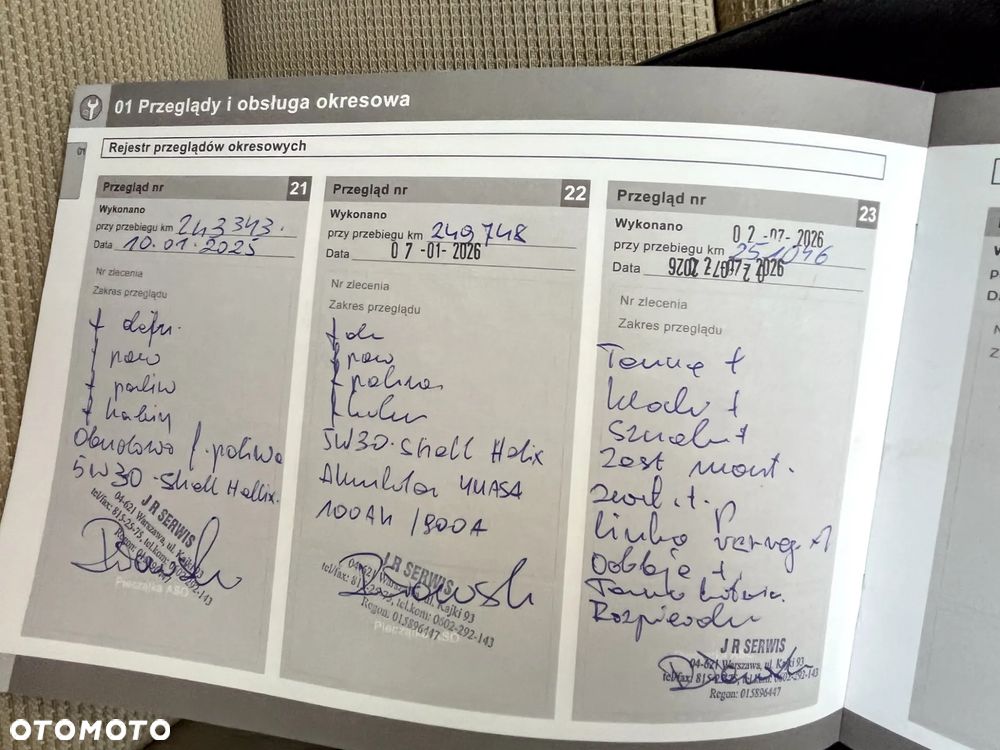 01 Przeglądy i obsługa okresowa
01
Rejestr przeglądów okresowych
Przegląd nr 21
Wykonano
przy przebiegu km 243343.
Data 10.01.2025
Nr zlecenia
Zakres przeglądu
f
f pow
f paliw
f kabin
Obudowa f. paliwa
5W30 - Shell Hellix.
J R SERWIS
04-621 Warszawa, ul. Kajki 93
tel/fax: 815-25-75, tel.kom: 0602-292-143
Regon: 015896447
Pieczątka ASO
Przegląd nr 22
Wykonano
przy przebiegu km 249748
Data 07-01-2026
Nr zlecenia
Zakres przeglądu
f
f pow
f
f
5W30 - Shell Helix
Akumulator YUASA
100AH / 900A
J R SERWIS
04-621 Warszawa, ul. Kajki 93
tel/fax: 815-25-75, tel.kom: 0602-292-143
Regon: 015896447
Pieczątka ASO
Przegląd nr 23
Wykonano 02-07-2026
przy przebiegu km 251046
Data
Nr zlecenia
Zakres przeglądu
t
Klocki t
t
Zest mont.
t.
Linka
Odboje t.
J R SERWIS
04-621 Warszawa, ul. Kajki 93
tel/fax: 815-25-75, tel.kom: 0602-292-143
Regon: 015896447
OTOMOTO